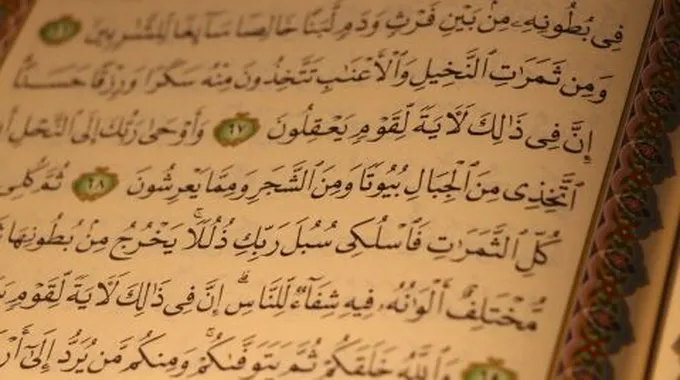 فِي بُطُونِهِۦ مِنۢ بَيْنِ فَرْثٍ وَدَمٍ لَّبَنًا خَالِصًا سَآئِغًا لِّلشَّٰرِبِينَ ٦٦
وَمِن ثَمَرَٰتِ ٱلنَّخِيلِ وَٱلْأَعْنَٰبِ تَتَّخِذُونَ مِنْهُ سَكَرًا وَرِزْقًا حَسَنًا
إِنَّ فِي ذَٰلِكَ لَءَايَةً لِّقَوْمٍ يَعْقِلُونَ ٦٧ وَأَوْحَىٰ رَبُّكَ إِلَى ٱلنَّحْلِ
ٱتَّخِذِي مِنَ ٱلْجِبَالِ بُيُوتًا وَمِنَ ٱلشَّجَرِ وَمِمَّا يَعْرِشُونَ ٦٨ ثُمَّ كُلِي
كُلِّ ٱلثَّمَرَٰتِ فَٱسْلُكِي سُبُلَ رَبِّكِ ذُلُلًا ۚ يَخْرُجُ مِنۢ بُطُونِهَا
مُّخْتَلِفٌ أَلْوَٰنُهُۥ فِيهِ شِفَآءٌ لِّلنَّاسِ ۗ إِنَّ فِي ذَٰلِكَ لَءَايَةً لِّقَوْمٍ
٦٩ وَٱللَّهُ خَلَقَكُمْ ثُمَّ يَتَوَفَّىٰكُمْ ۚ وَمِنكُم مَّن يُرَدُّ إِلَىٰٓ